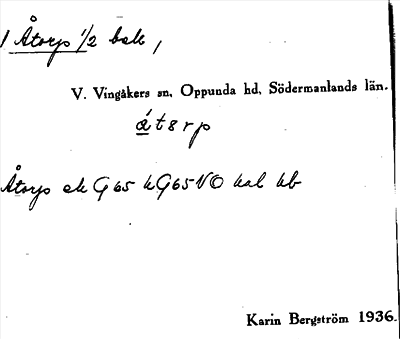 1 Åtorp 1/2 bell,
V. Vingåkers sn, Oppunda hd, Södermanlands län.
át8rp
Åtorp ek G65 kG65NO bal kb
Karin Bergström 1936.